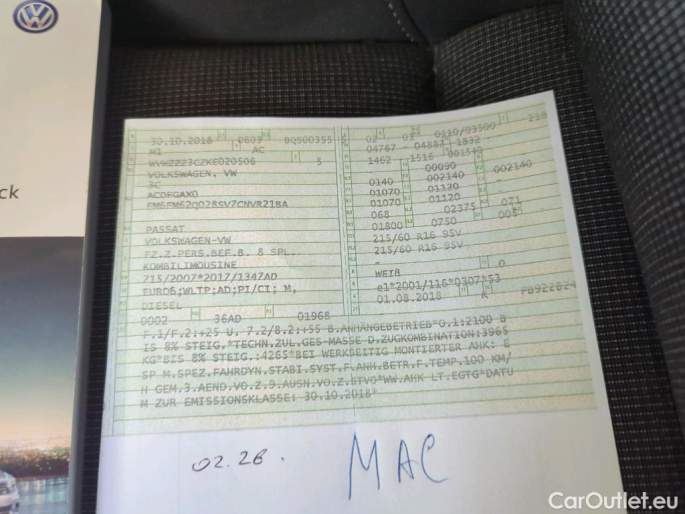 ck
30.10.2018 0603 BQS00355
M1 AC
WVWZZZ3CZKE020506 5
VOLKSWAGEN, VW
3C
PASSAT
VOLKSWAGEN-VW
FZ.Z.PERS.BEF.B. 8 SPL.
KOMBILIMOUSINE
715/2007*2017/1347AD
EURO6;WLTP;AD;PI/CI; M,
DIESEL
0002 36AD 01968
02 01 0110/03500 210
04767 - 04883 1832
1462 1516
00090
0140 002140 002140
01070 01120 -
01070 01120 -
068 02375 071
01800 0750 005
215/60 R16 95V
215/60 R16 95V
-
WEIß 0
e1*2001/116*0307*53
01.08.2018 K
F.1/F.2:+25 U. 7.2/8.2:+55 B.ANHÄNGEBETRIEB*O.1:2100 B
IS 8% STEIG.*TECHN.ZUL.GES-MASSE D.ZUGKOMBINATION:3965
KG*BIS 8% STEIG.:4265*BEI WERKSEITIG MONTIERTER AHK: E
SP M.SPEZ.FAHRDYN.STABI.SYST.F.ANH.BETR.F.TEMP.100 KM/
H GEM.3.AEND.VO.Z.9.AUSN.VO.Z.STVO*WW.AHK LT.EGTG*DATU
M ZUR EMISSIONSKLASSE: 30.10.2018*
02.26.
MAC
CarOutlet.eu